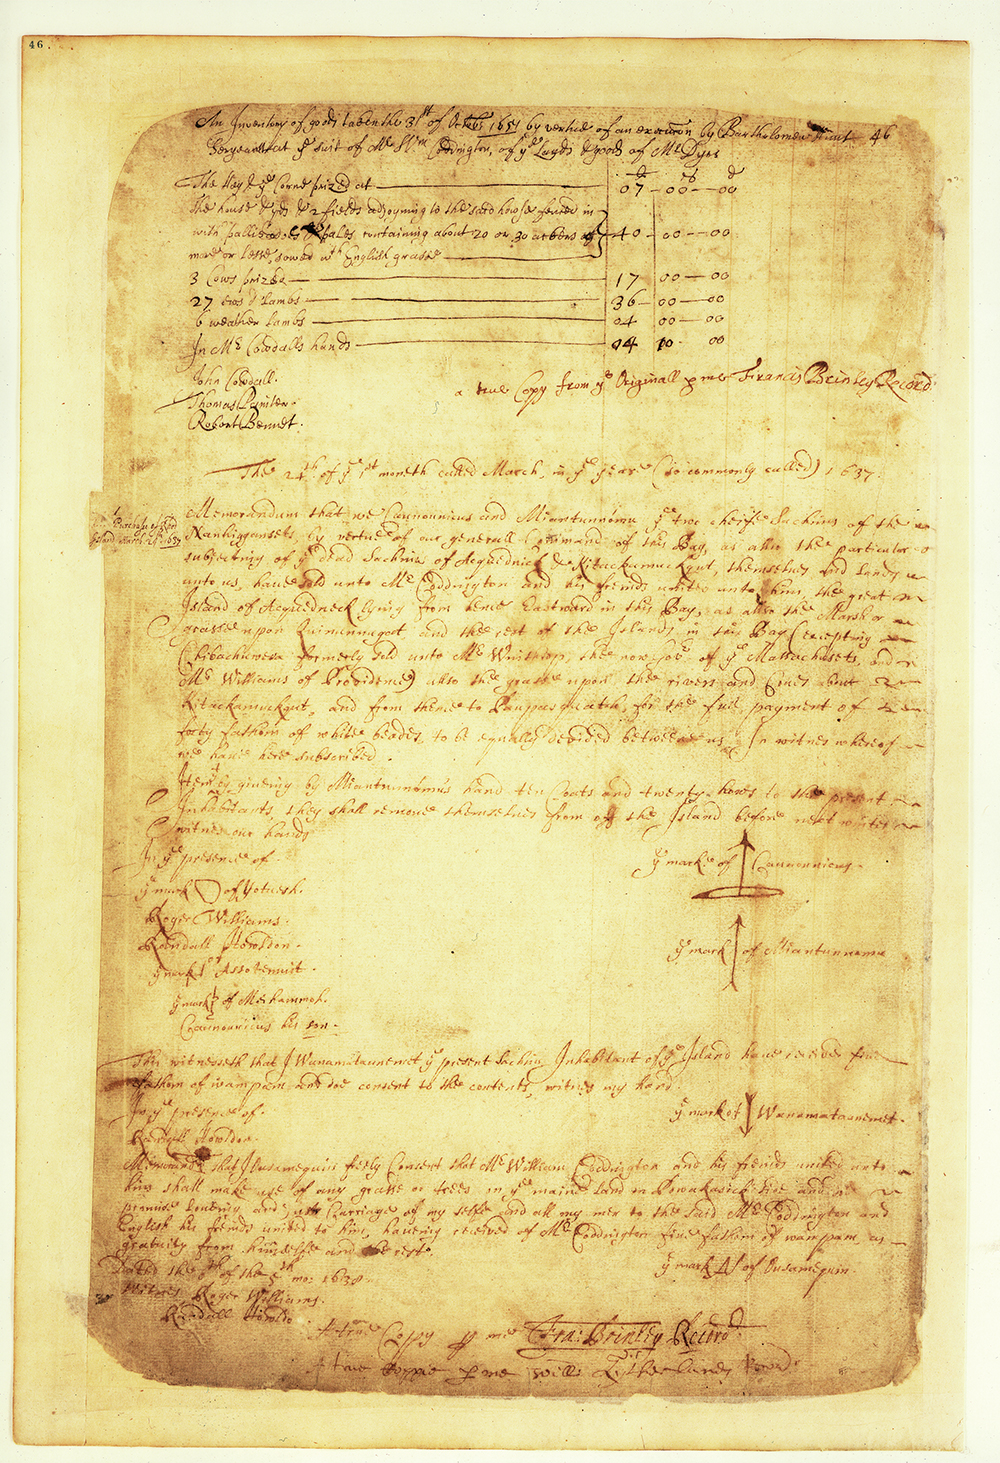 46.
An Inventory of goods taken the 31st of October 1651 by vertue of an execution by Bartholomew Hunt 46
Sergeant at ye suit of Mr Wm Coddington, of ye Lands & goods of Mr Dyre
The Hay & ye Corne prized at 07 - 00 - 00
The house & yds & 2 fields adjoyning to the said howse fenced in
with pallisadoes & pales containing about 20 or 30 ackers 40 - 00 - 00
more or lesse, sowed wth English grasse
3 Cows prized 17 00 - 00
27 ews & Lambs 36 - 00 - 00
6 weather Lambs 04 00 - 00
In Mr Cowdalls hands 04 10 - 00
John Cowdall.
a true Copy from ye Originall p me Francis Brinley Record
Thomas Painter.
Robert Bennet.
The 24th of ye 1st moneth called March, in ye yeare (so commonly called) 1637.
Purchase of Rod
Island March 24 1637
Memorandum that we Caunounicus and Miantunnomu ye two cheife Sachims of the
Nanhiggansets, by vertue of our generall Command of this Bay, as also the particular
subjecting of ye dead Sachims of Acquednick & Kitackamuckqut, themselves and Lands
unto us, have sold unto Mr Coddington and his friends united unto him, the great
Island of Acquedneck lying from hence Eastward in this Bay, as also the Marsh or
grasse upon Quinunnugat and the rest of the Islands in this Bay (excepting
Chibachuwesa formerly sold unto Mr Winthrop, the now Govr of ye Massachusets, and
Mr Williams of Providence) also the grasse upon the rivers and Coves about
Kitackamuckqut, and from thence to Paupasquatch, for the full payment of
forty fathom of white beades, to be equally devided betweene us. In witnes whereof
we have here subscribed.
Item yt by giveing by Miantunnomus hand ten Coats and twenty howes to the present
Inhabitants, they shall remove themselves from off the Island before next winter
witnes our hands
In ye presence of.
ye marke of Caunounicus.
ye mark of Yotnesh.
Roger Williams.
Randall Howldon.
ye mark of Miantunnome
ye mark of Assotemuit.
ye mark of Meihammoh.
Caunounicus his son.
This witnesseth that I Wanamataunemet ye present Sachim Inhabitant of ye Island have received five
fathom of wampam and doe consent to the contents, witnes my hand
In ye presence of.
ye mark of Wanamataunemet.
Randall Howldon.
Memorand That I Ousamequin freely Consent that Mr William Coddington and his freinds united unto
him shall make use of any grasse or trees in ye maine Land on Powakasick side and
promise loveing and just Carriage of my selfe and all my men to the said Mr Coddington and
English his freinds united to him, haveing received of Mr Coddington five fathom of wampam as
gratuity from himselfe and the rest.
Dated the 6th of the 5th mo: 1638.
ye mark of Ousamequin.
Witnes Roger Williams.
Randall Howldon
A true Coppy p me Fra: Brinley Record
A true Coppie p me Wills Lytherland Record